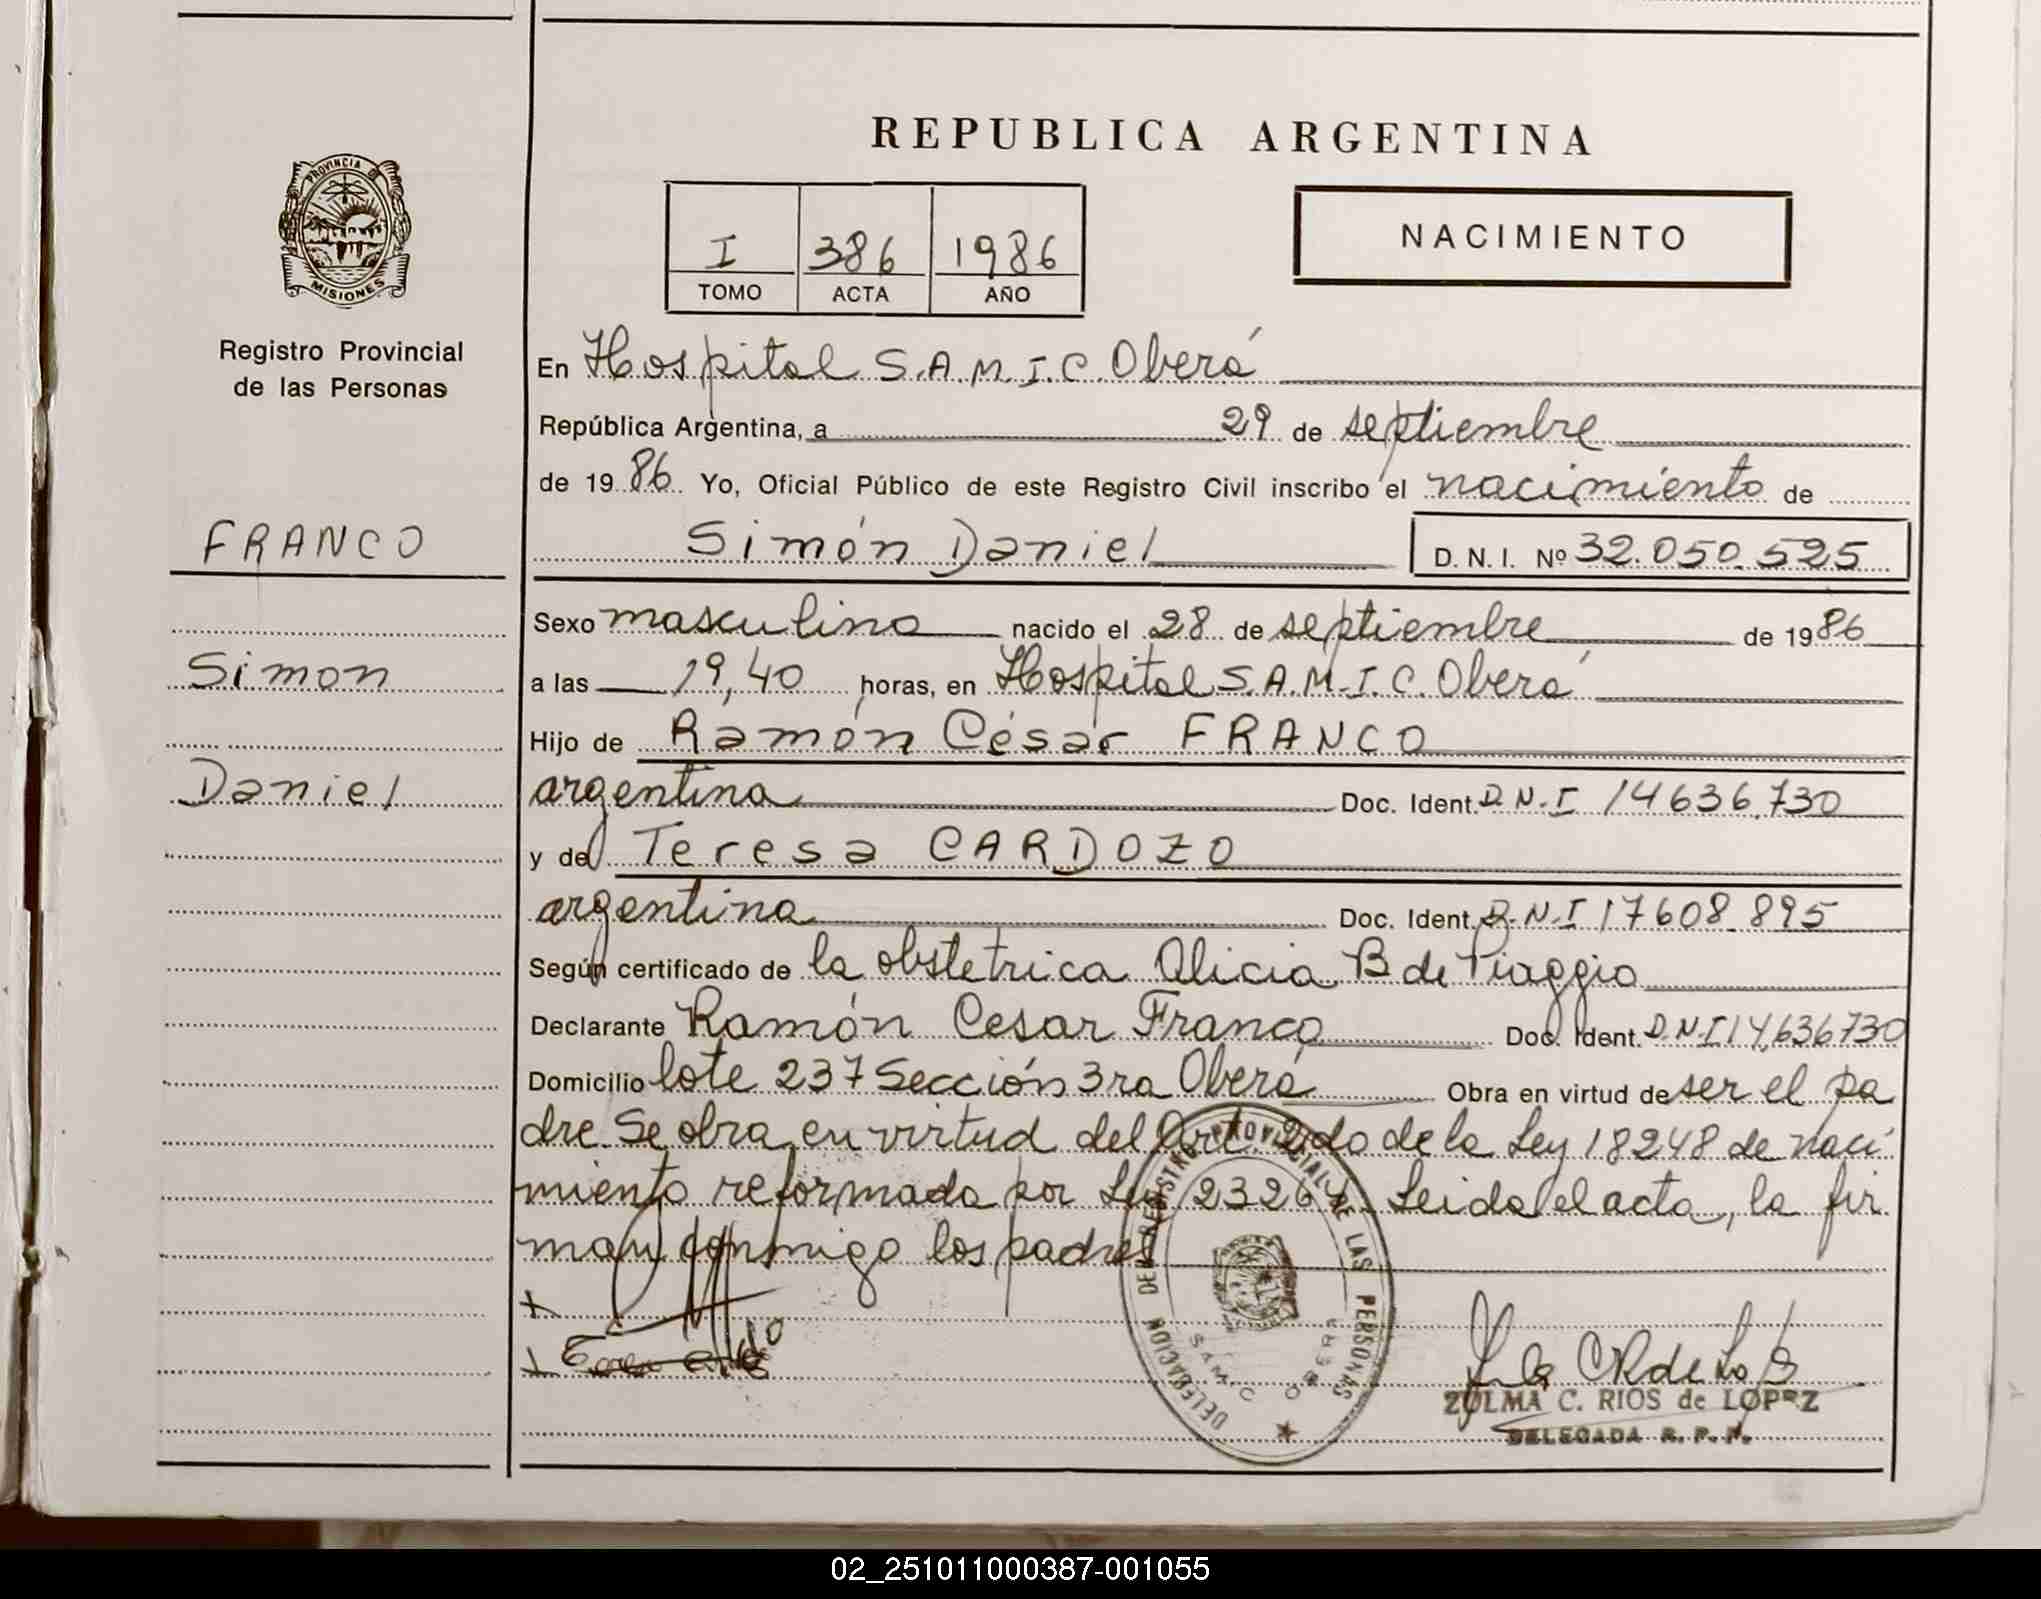 REPUBLICA ARGENTINA
PROVINCIA DE
MISIONES
Registro Provincial
de las Personas
I 386 1986
TOMO ACTA AÑO
NACIMIENTO
En Hospital S.A.M.I.C. Oberá
República Argentina, a 29 de septiembre
de 1986. Yo, Oficial Público de este Registro Civil inscribo el nacimiento de
FRANCO
Simón Daniel D.N.I. Nº 32.050.525
Sexo masculino nacido el 28 de septiembre de 1986
Simon
a las 19,40 horas, en Hospital S.A.M.I.C. Oberá
Hijo de Ramón César FRANCO
Daniel
argentina Doc. Ident. D.N.I 14636.730
y de Teresa CARDOZO
argentina Doc. Ident. D.N.I 17608.895
Según certificado de la obstetrica Alicia B de Piaggio
Declarante Ramón Cesar Franco Doc. Ident. D.N.I 14.636730
Domicilio lote 237 Sección 3ra Oberá Obra en virtud de ser el pa
dre. Se obra en virtud del Art. 2do de la Ley 18248 de naci
miento reformada por Ley 23264. Leida el acta, la fir
man conmigo los padres
DELEGACION DEL REGISTRO PROVINCIAL DE LAS PERSONAS
SAMIC OBERA
ZULMA C. RIOS de LOPEZ
DELEGADA R. P. P.
02_251011000387-001055